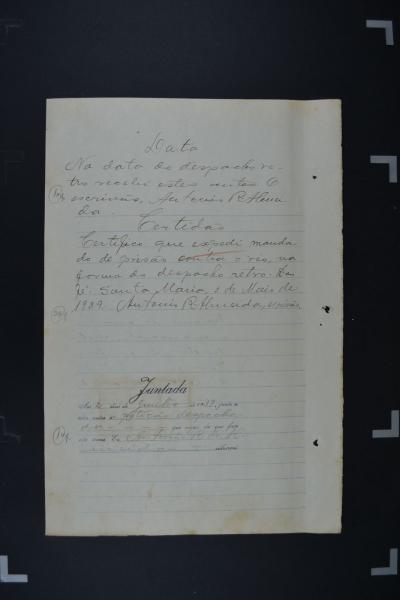 Data
Na data do despacho re-
tro recebi estes autos O
escrivão, Antonio R. Almei
da.
Certidão
Certifico que expedi manda
do de prisão contra o réo, na
forma do despacho retro. Dou
fé. Santa Maria, 2 de Maio de
1937. Antonio R. Almeida, escrivão
Juntada
Aos dias de de 1937, junto a
estes autos a petição despacha
da que segue; do que faço
este termo. Eu,
subscrevi